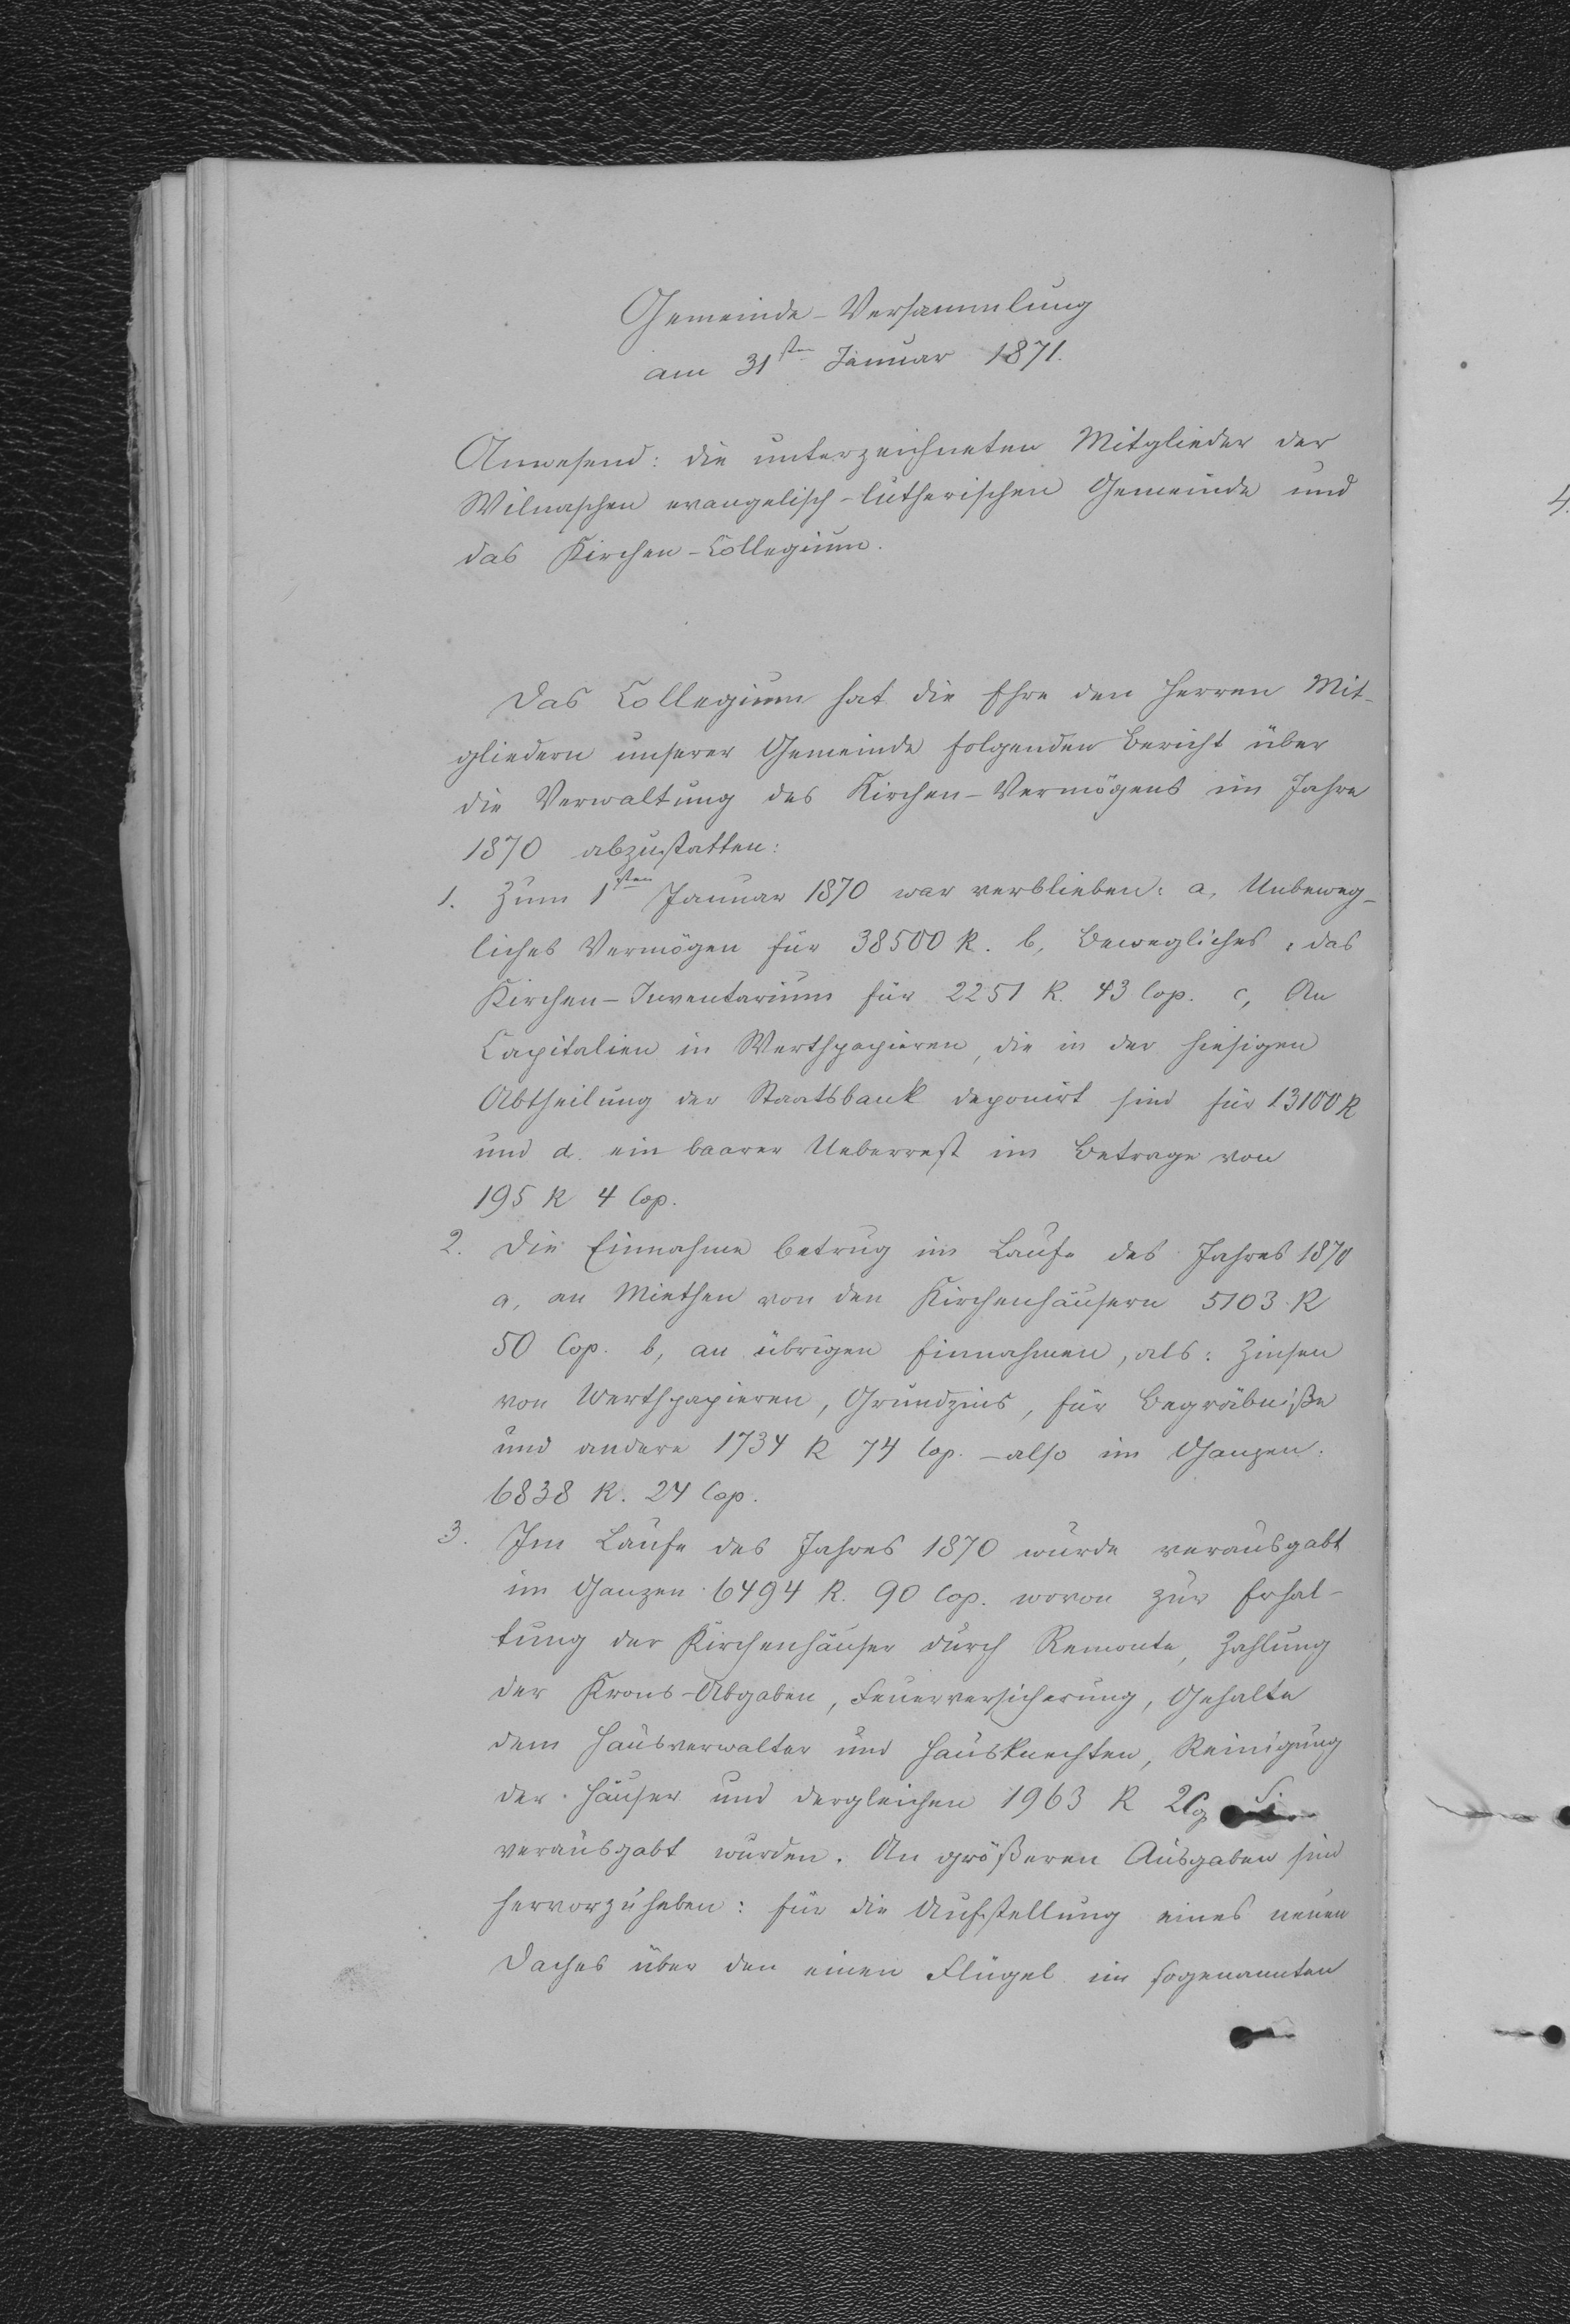 Gemeinde-Versammlung
am 31sten Januar 1871.
Anwesend: die unterzeichneten Mitglieder der
Wilnaschen evangelisch-lutherischen Gemeinde und
das Kirchen-Collegium.
Das Collegium hat die Ehre den Herren Mit-
gliedern unserer Gemeinde folgenden Bericht über
die Verwaltung des Kirchen-Vermögens im Jahre
1870 abzustatten:
1. Zum 1sten Januar 1870 war verblieben: a, Unbeweg-
liches Vermögen für 38500 R. b, Bewegliches, das
Kirchen-Inventarium für 2251 R. 43 Cop. c, An
Capitalien in Werthpapieren, die in der hiesigen
Abtheilung der Staatsbank deponirt sind für 13100 R
und d. ein baarer Ueberrest im Betrage von
195 R 4 Cop.
2. Die Einnahme betrug im Laufe des Jahres 1870
a, an Miethen von den Kirchenhäusern 5103 R
50 Cop. b, an übrigen Einnahmen, als: Zinsen
von Werthpapieren, Grundzins, für Begräbniße
und andere 1734 R 74 Cop. – also im Ganzen:
6838 R. 24 Cop.
3. Im Laufe des Jahres 1870 wurde verausgabt
im Ganzen 6494 R. 90 Cop. wovon zur Erhal-
tung der Kirchenhäuser durch Remonte, Zahlung
der Krons-Abgaben, Feuerversicherung, Gehalte
dem Hausverwalter und Hausknechten, Reinigung
der Häuser und dergleichen 1963 R
verausgabt wurden. An größeren Ausgaben sind
hervorzuheben: für die Aufstellung eines neuen
Daches über den einen Flügel im sogenannten
4.